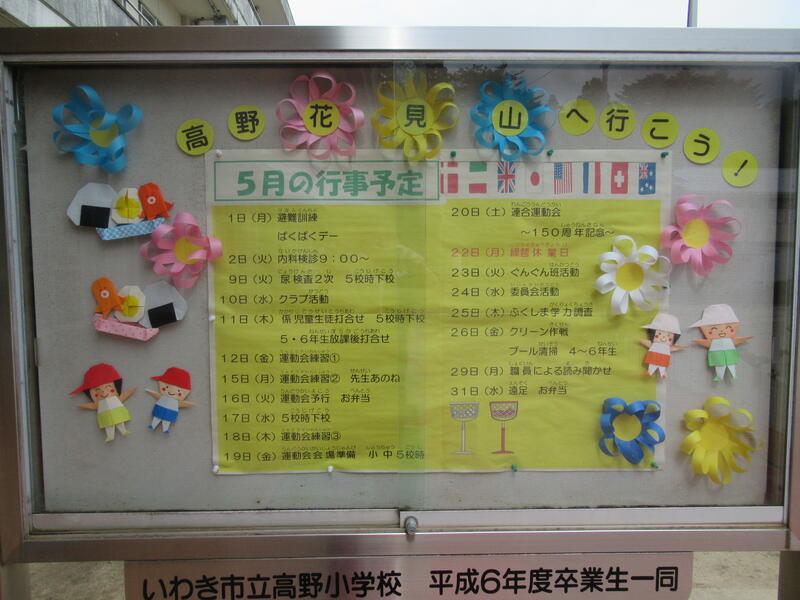 高野花見山へ行こう!
5月の行事予定
1日(月)避難訓練
ぱくぱくデー
2日(火)内科検診9：00～
9日(火)尿検査2次 5校時下校
10日(水)クラブ活動
11日(木)係児童生徒打合せ 5校時下校
5・6年生放課後打合せ
12日(金)運動会練習①
15日(月)運動会練習② 先生あのね
16日(火)運動会予行 お弁当
17日(水)5校時下校
18日(木)運動会練習③
19日(金)運動会会場準備 小中5校時
20日(土)連合運動会
～150周年記念～
22日(月)繰替休業日
23日(火)ぐんぐん班活動
24日(水)委員会活動
25日(木)ふくしま学力調査
26日(金)クリーン作戦
プール清掃 4～6年生
29日(月)職員による読み聞かせ
31日(水)遠足 お弁当
いわき市立高野小学校 平成6年度卒業生一同